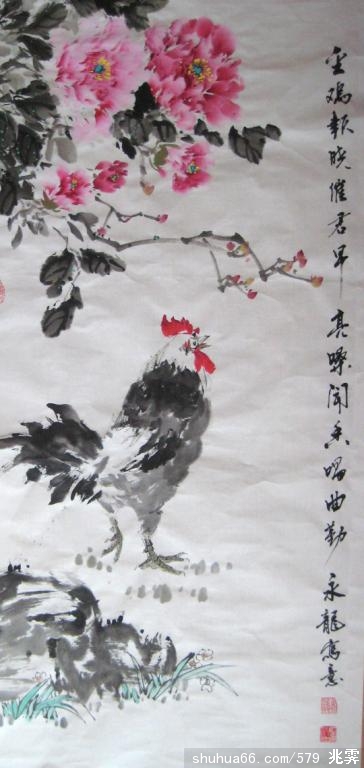 金鸡報晓催君早 亮嗓闻香唱曲勤 永龍寫意
shuhua66.com/579 兆霁